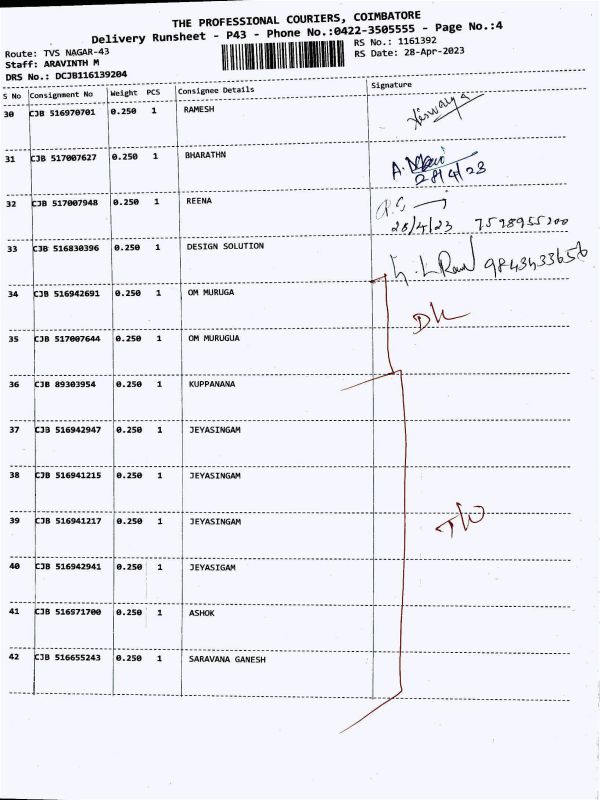 THE PROFESSIONAL COURIERS, COIMBATORE
Delivery Runsheet - P43 - Phone No.:0422-3505555 - Page No.:4
Route: TVS NAGAR-43
RS No.: 1161392
Staff: ARAVINTH M
RS Date: 28-Apr-2023
DRS No.: DCJB116139204
S No Consignment No Weight PCS Consignee Details Signature
30 CJB 516970701 0.250 1 RAMESH
31 CJB 517007627 0.250 1 BHARATHN
28/4/23
32 CJB 517007948 0.250 1 REENA
28/4/23 7598955200
33 CJB 516830396 0.250 1 DESIGN SOLUTION 9843433656
34 CJB 516942691 0.250 1 OM MURUGA
35 CJB 517007644 0.250 1 OM MURUGUA
36 CJB 89303954 0.250 1 KUPPANANA
37 CJB 516942947 0.250 1 JEYASINGAM
38 CJB 516941215 0.250 1 JEYASINGAM
39 CJB 516941217 0.250 1 JEYASINGAM
40 CJB 516942941 0.250 1 JEYASIGAM
41 CJB 516971700 0.250 1 ASHOK
42 CJB 516655243 0.250 1 SARAVANA GANESH